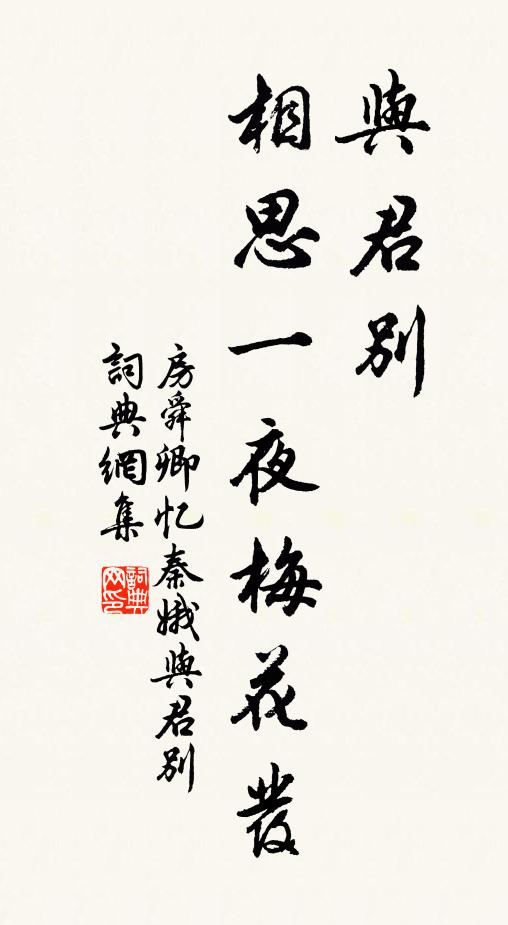 與君別
相思一夜梅花發
房舜卿忆秦娥與君別
詞典網集
詞典网印